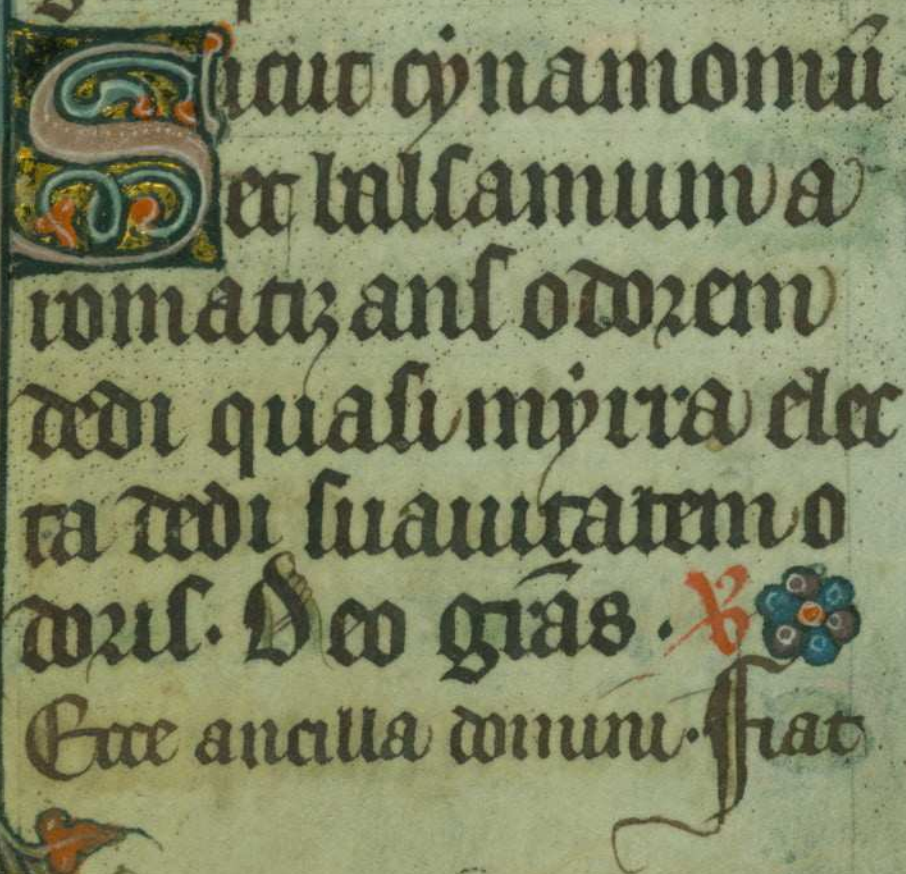 Sicut cẏnamomū
et balsamum a
romatizans odorem
dedi quasi mẏrra elec
ta dedi suauitatem o
doris. Deo grās. ℣
Ecce ancilla domini. Fiat